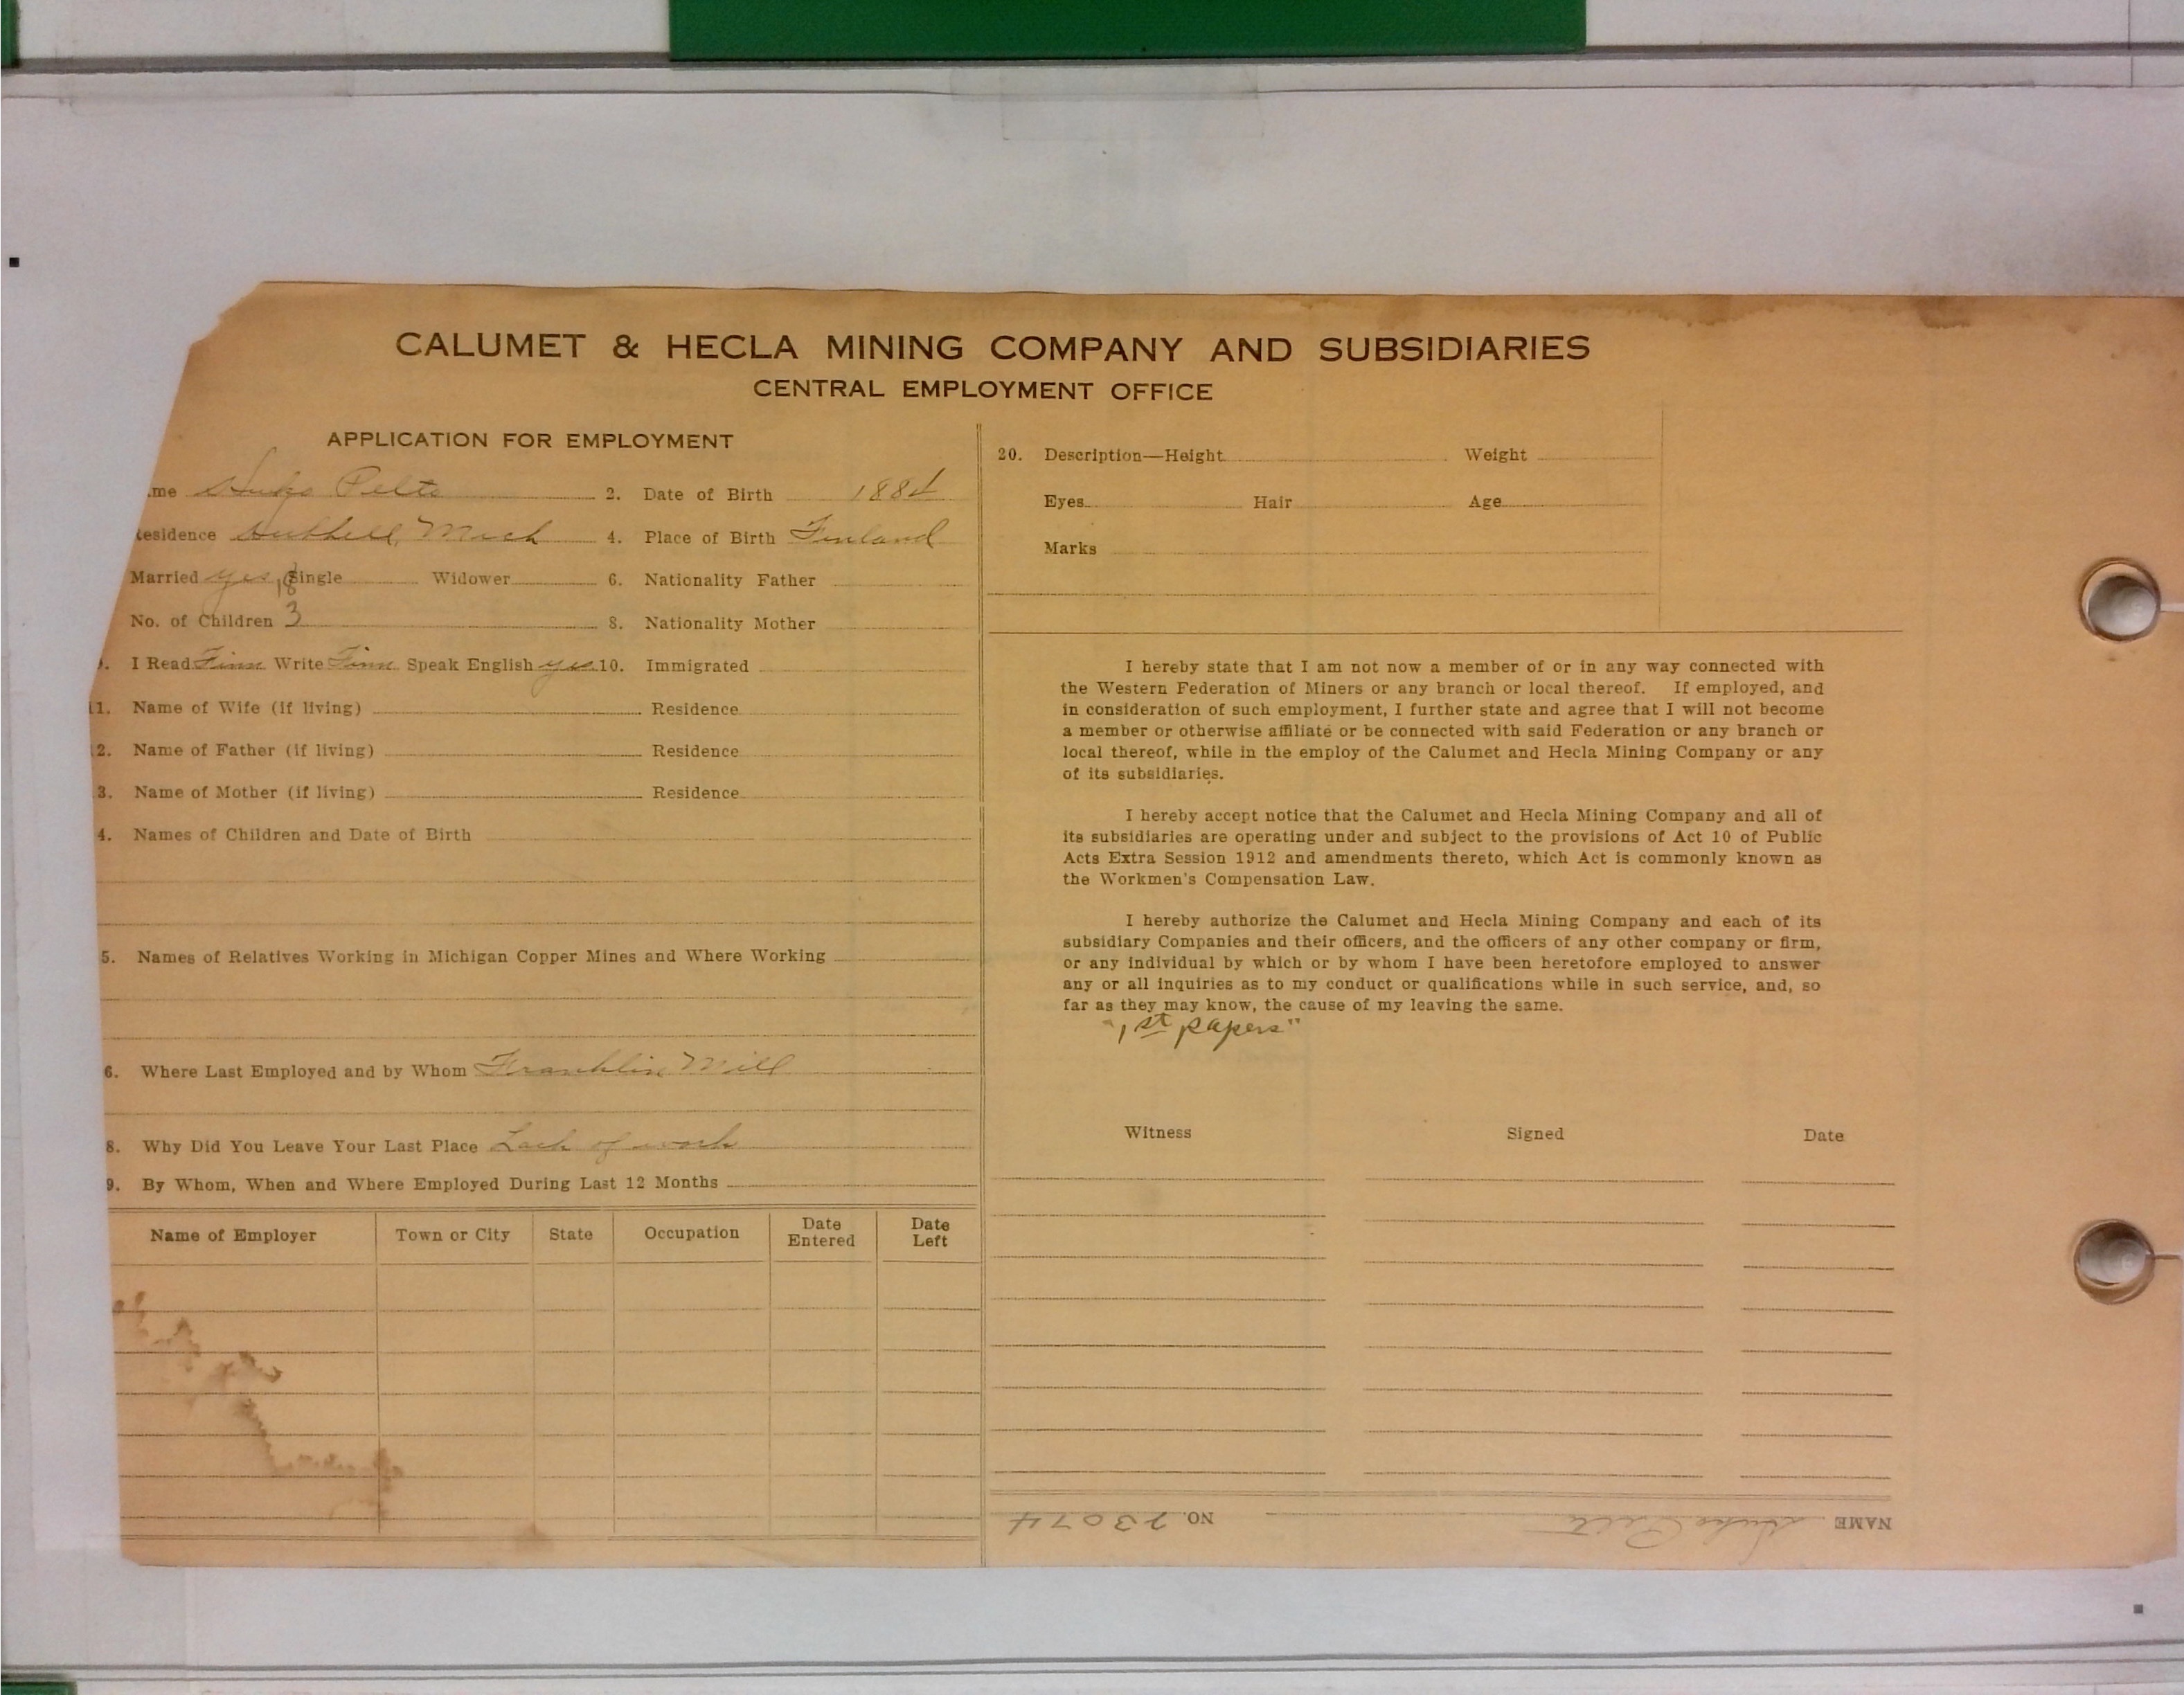 CALUMET & HECLA MINING COMPANY AND SUBSIDIARIES
CENTRAL EMPLOYMENT OFFICE
APPLICATION FOR EMPLOYMENT
me Hugo Pelto 2. Date of Birth 1884
Residence Hubbell, Mich 4. Place of Birth Finland
Married yes, Single Widower 6. Nationality Father
No. of Children 3 8. Nationality Mother
9. I Read Finn Write Finn Speak English yes 10. Immigrated
11. Name of Wife (if living) Residence
2. Name of Father (if living) Residence
3. Name of Mother (if living) Residence
4. Names of Children and Date of Birth
5. Names of Relatives Working in Michigan Copper Mines and Where Working
6. Where Last Employed and by Whom Franklin Mill
8. Why Did You Leave Your Last Place Lack of work
9. By Whom, When and Where Employed During Last 12 Months
Name of Employer Town or City State Occupation Date Entered Date Left
20. Description—Height Weight
Eyes Hair Age
Marks
I hereby state that I am not now a member of or in any way connected with
the Western Federation of Miners or any branch or local thereof. If employed, and
in consideration of such employment, I further state and agree that I will not become
a member or otherwise affiliate or be connected with said Federation or any branch or
local thereof, while in the employ of the Calumet and Hecla Mining Company or any
of its subsidiaries.
I hereby accept notice that the Calumet and Hecla Mining Company and all of
its subsidiaries are operating under and subject to the provisions of Act 10 of Public
Acts Extra Session 1912 and amendments thereto, which Act is commonly known as
the Workmen's Compensation Law.
I hereby authorize the Calumet and Hecla Mining Company and each of its
subsidiary Companies and their officers, and the officers of any other company or firm,
or any individual by which or by whom I have been heretofore employed to answer
any or all inquiries as to my conduct or qualifications while in such service, and, so
far as they may know, the cause of my leaving the same.
"1st papers"
Witness Signed Date
NAME Hugo Pelto NO. 23074